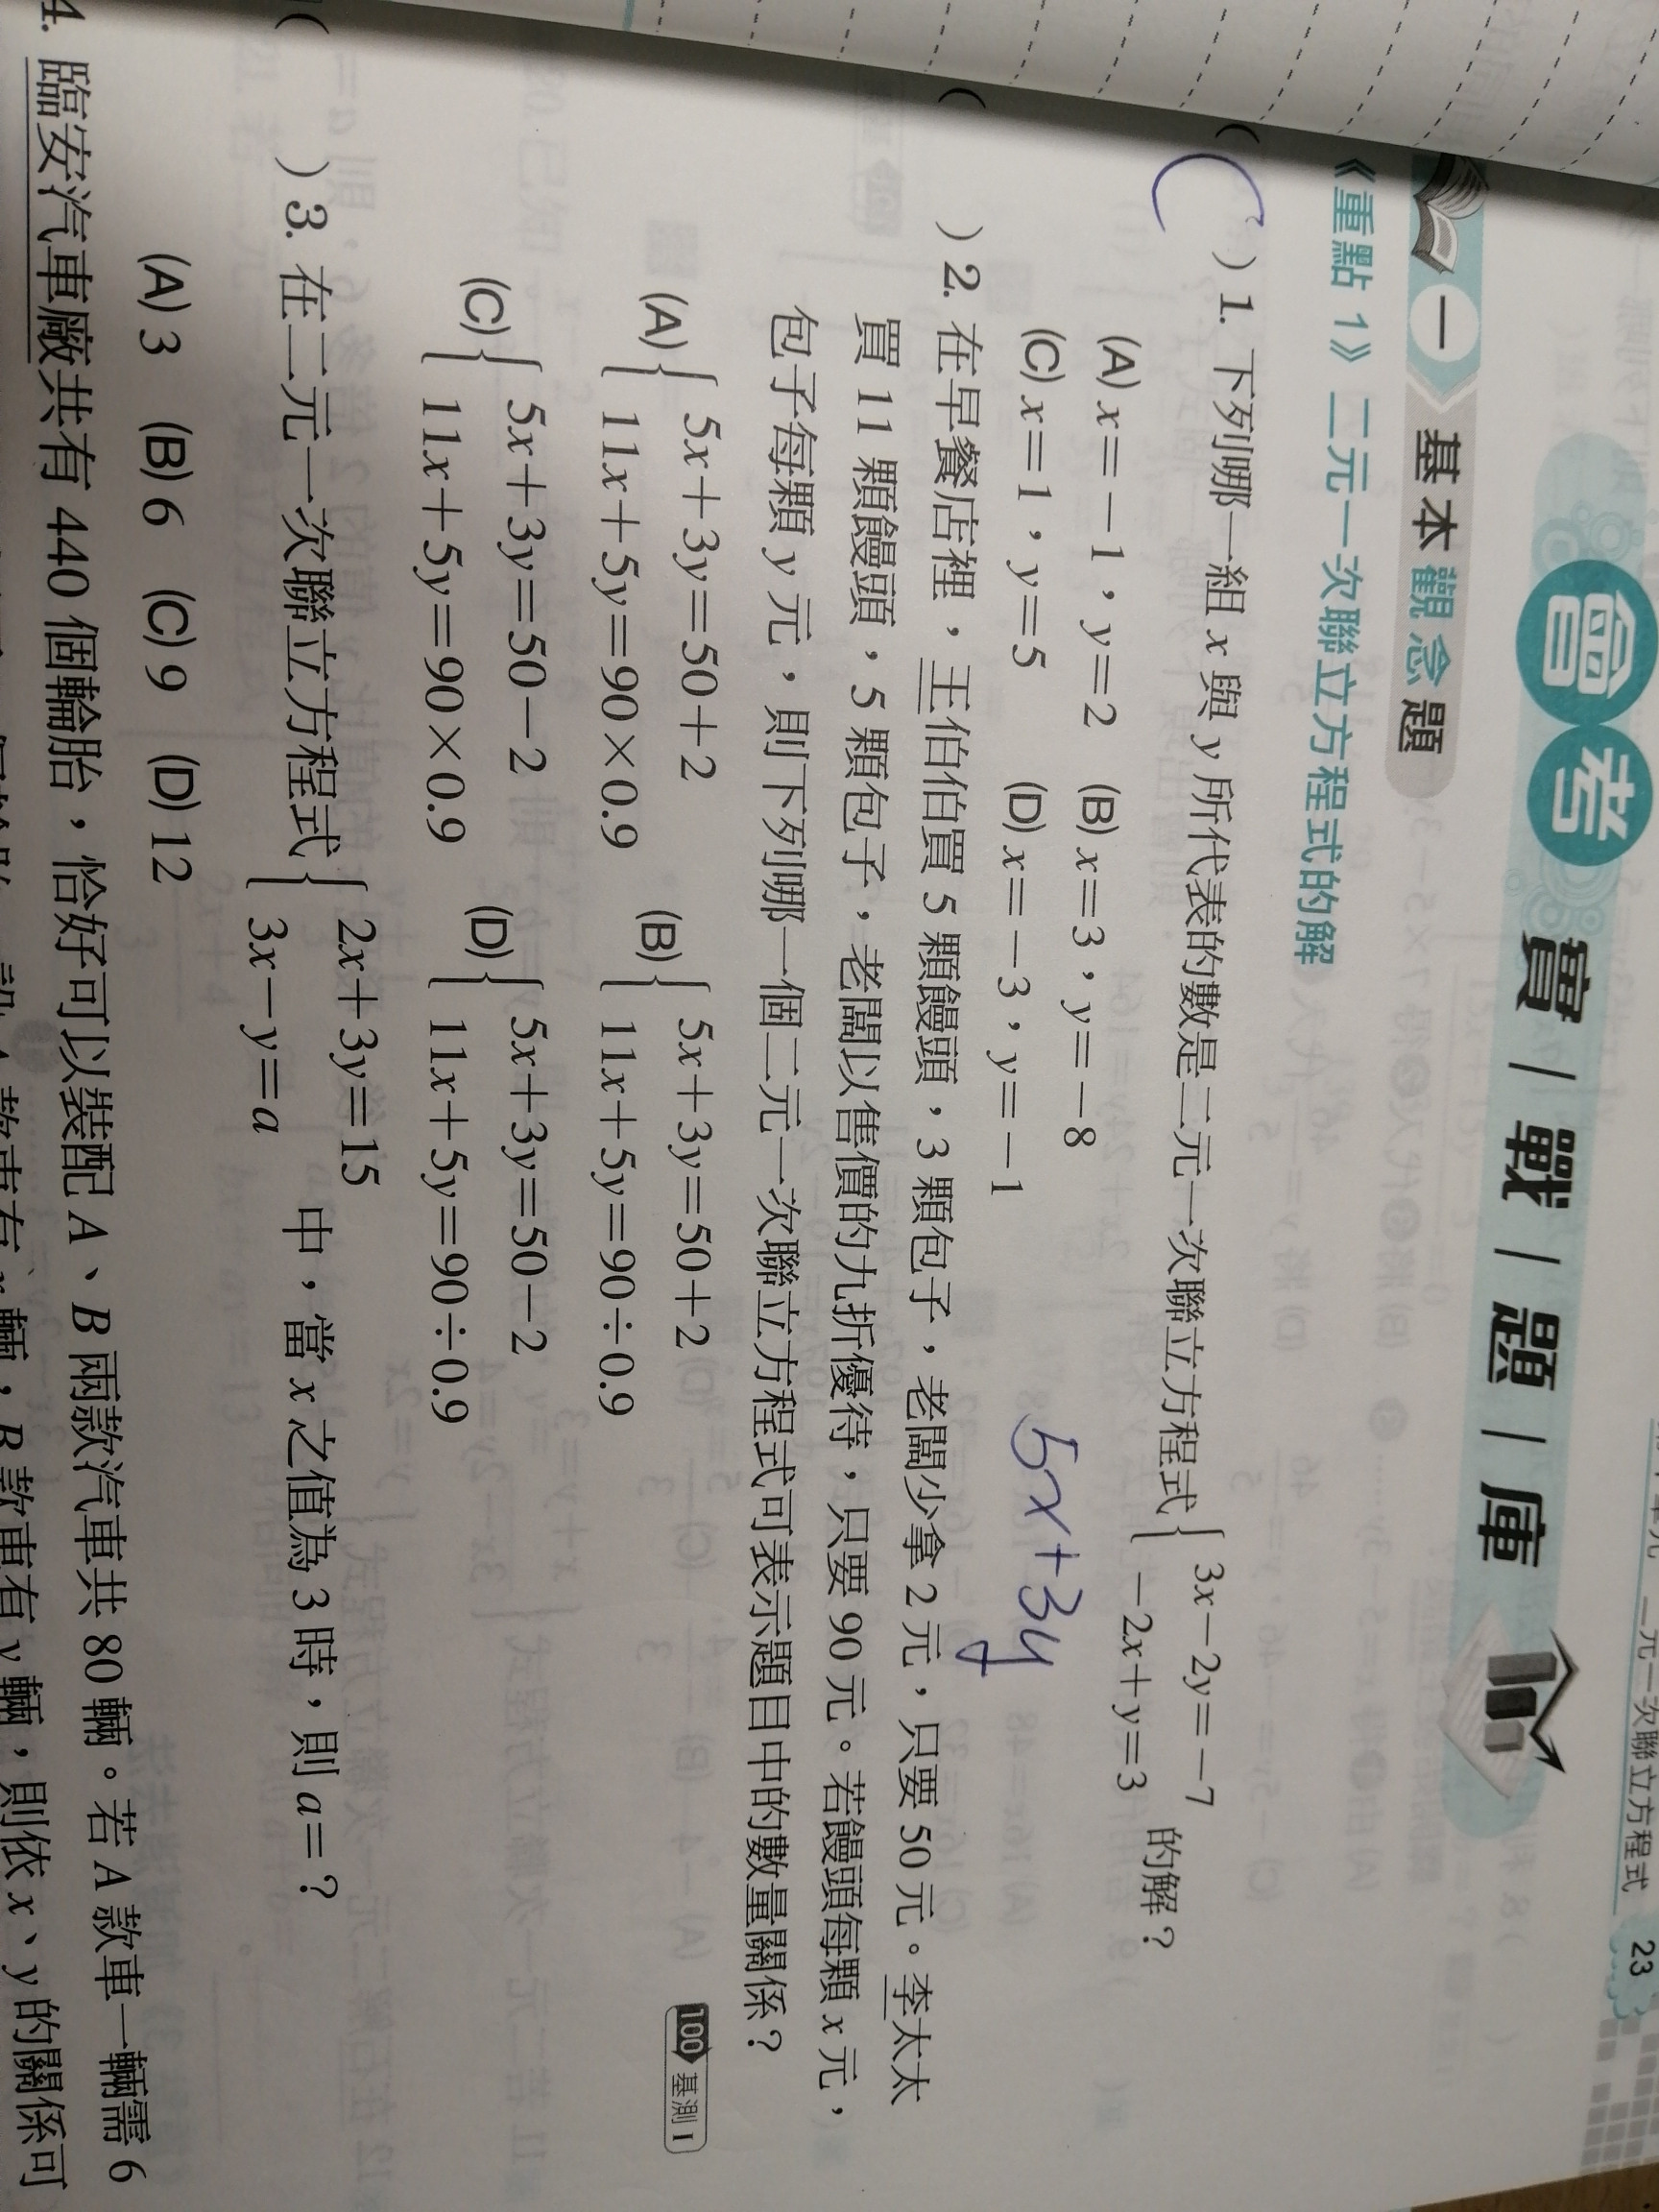 一元一次聯立方程式 23
會考 實|戰|題|庫
一 基本觀念題
《重點1》二元一次聯立方程式的解
( C )1. 下列哪一組x與y所代表的數是二元一次聯立方程式{3x-2y=-7
-2x+y=3 的解?
(A) x=-1,y=2 (B) x=3,y=-8
(C) x=1,y=5 (D) x=-3,y=-1
5x+3y
( )2. 在早餐店裡,王伯伯買5顆饅頭,3顆包子,老闆少拿2元,只要50元。李太太
買11顆饅頭,5顆包子,老闆以售價的九折優待,只要90元。若饅頭每顆x元,
包子每顆y元,則下列哪一個二元一次聯立方程式可表示題目中的數量關係?
100 基測 I
(A){5x+3y=50+2
11x+5y=90×0.9
(B){5x+3y=50+2
11x+5y=90÷0.9
(C){5x+3y=50-2
11x+5y=90×0.9
(D){5x+3y=50-2
11x+5y=90÷0.9
( )3. 在二元一次聯立方程式{2x+3y=15
3x-y=a 中,當x之值為3時,則a=?
(A) 3 (B) 6 (C) 9 (D) 12
4. 臨安汽車廠共有440個輪胎,恰好可以裝配A、B兩款汽車共80輛。若A款車一輛需6
款車有x輛,B款車有y輛,則依x、y的關係可